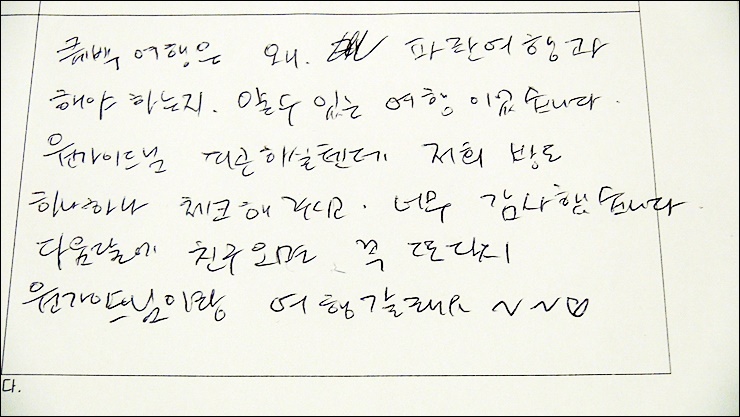 퀘백 여행은 왜. 파란여행과
해야 하는지. 알 수 있는 여행 이었습니다.
원가이드님 피곤하실텐데 저희 방도
하나하나 체크해 주시고. 너무 감사했습니다.
다음달에 친구오면 꼭 또다시
원가이드님이랑 여행갈래요 ~~♡
다.